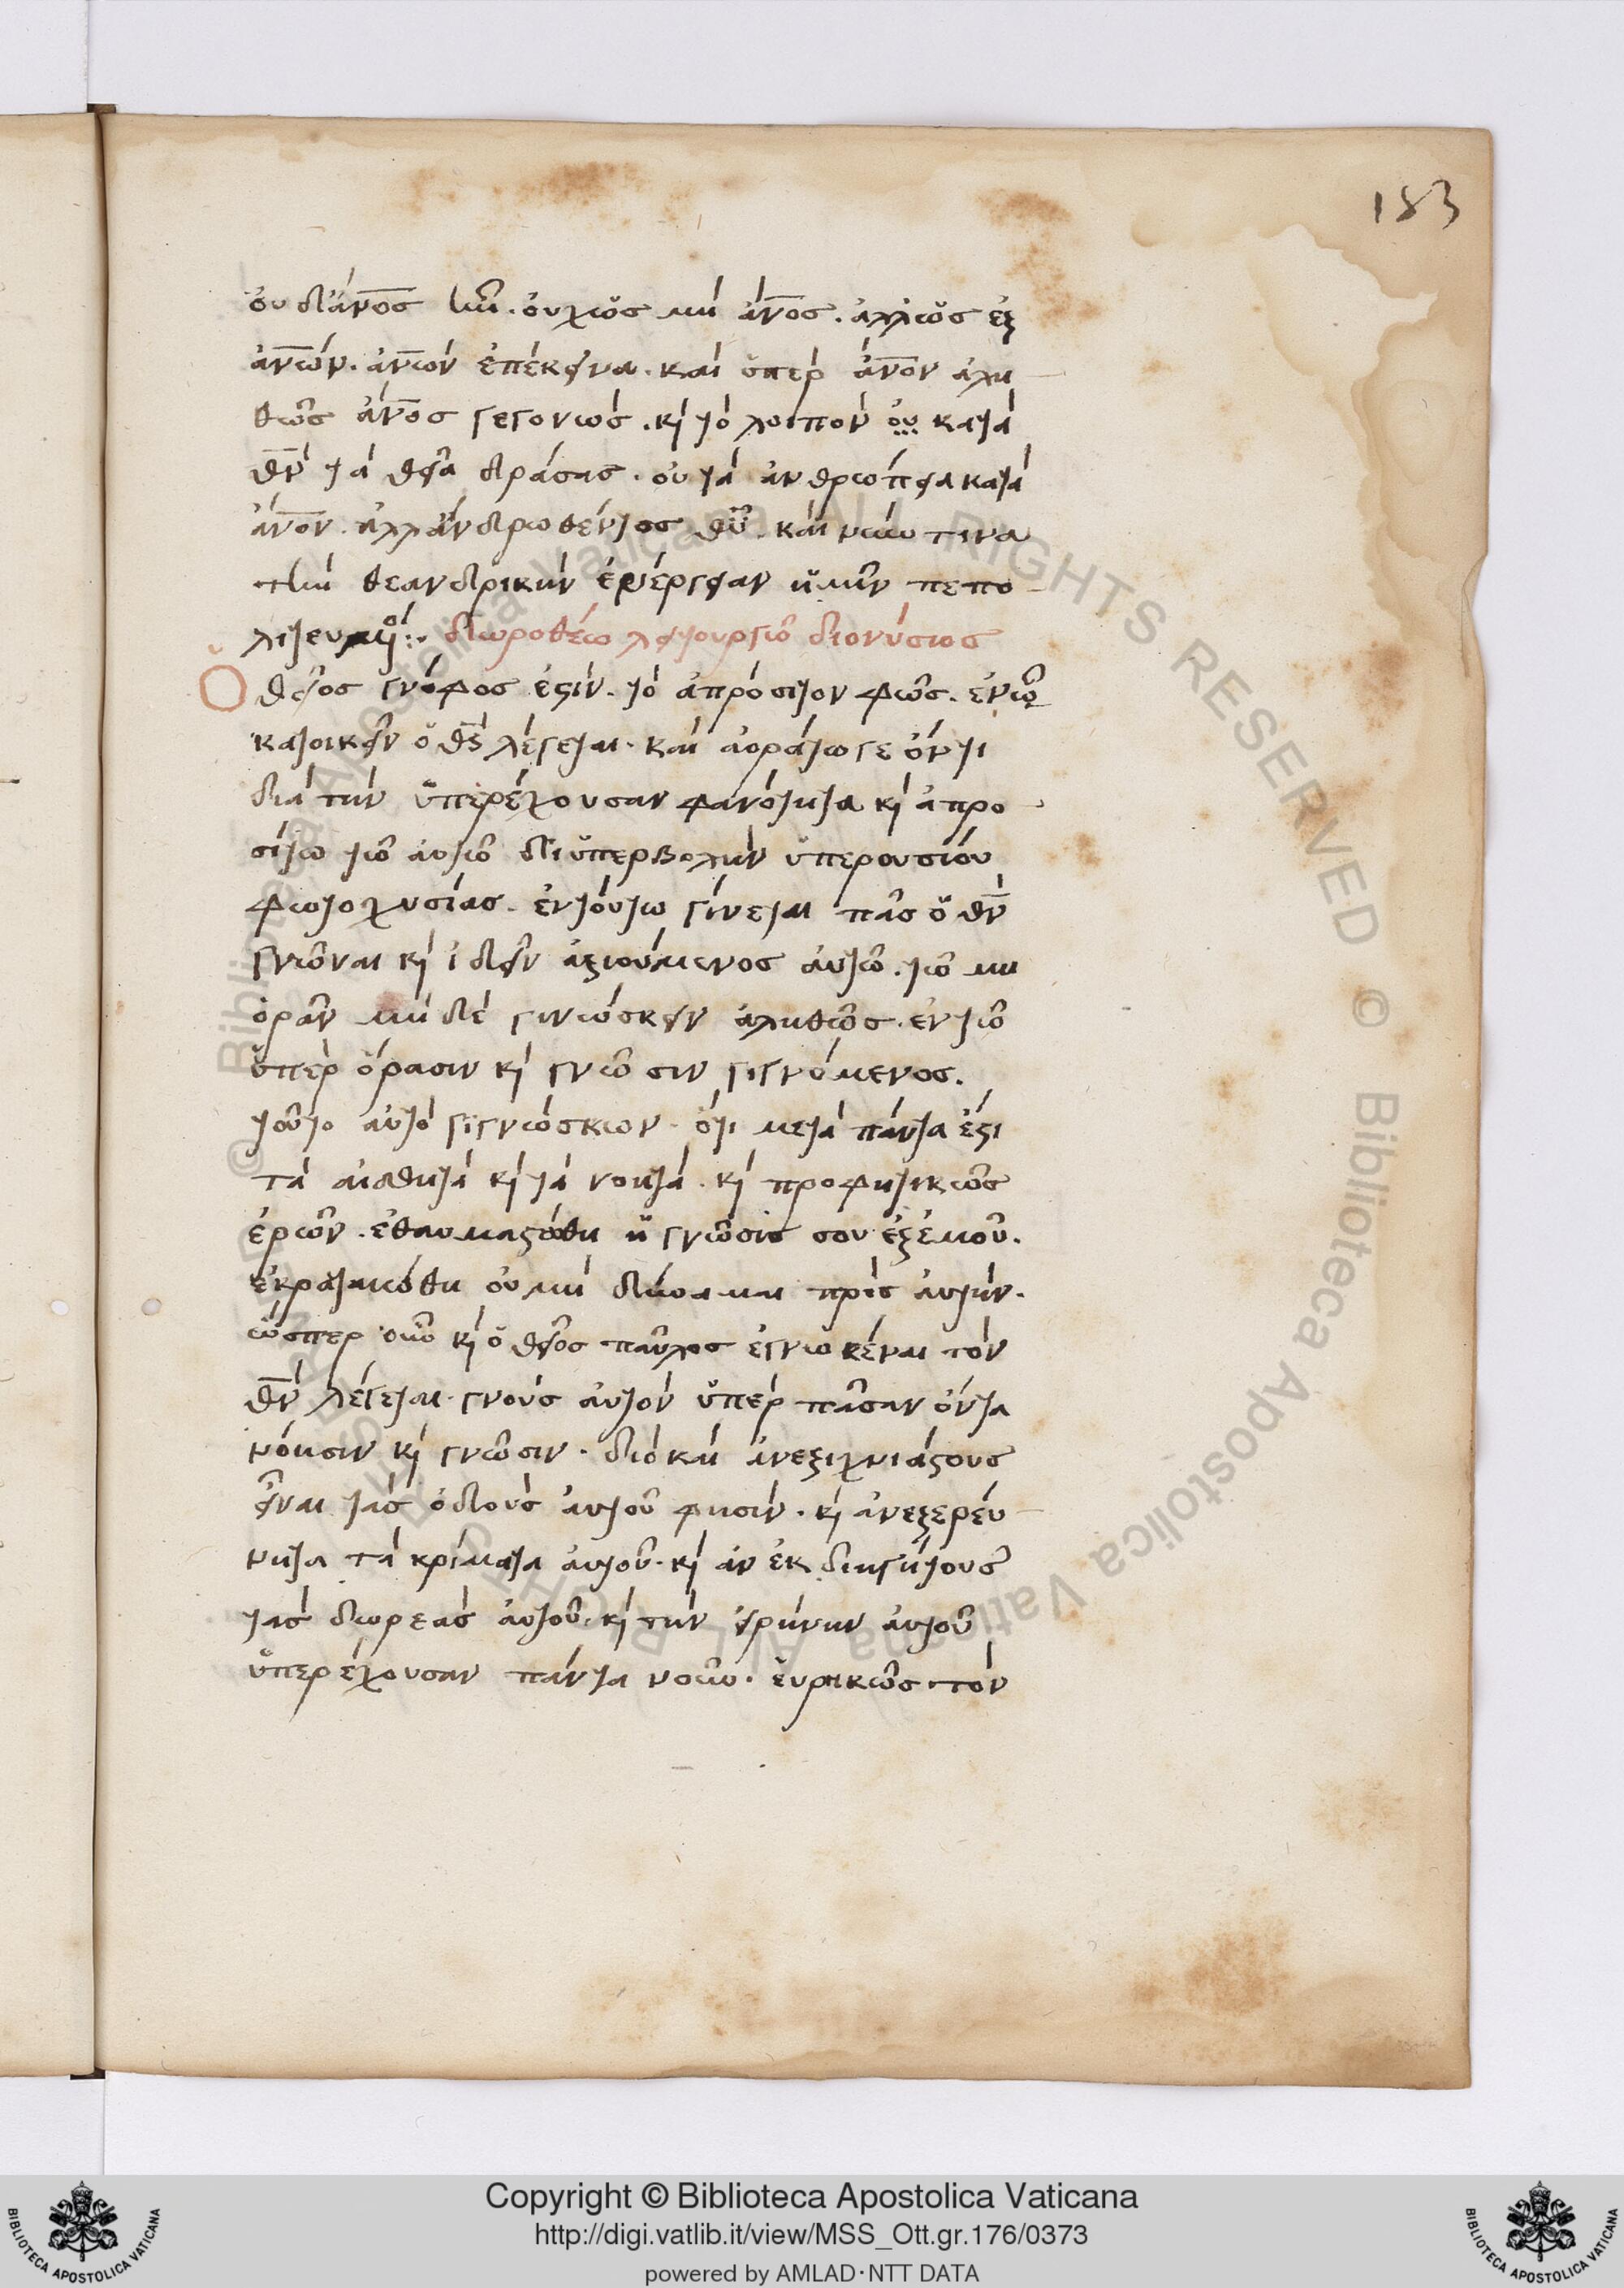 183
οὐδ' ἄν̅ο̅ς ἦν. οὐχ ὡς μὴ ἄν̅ο̅ς. ἀλλ' ὡς ἐξ
ἀν̅ω̅ν. ἀν̅ω̅ν ἐπέκεινα. καὶ ὑπὲρ ἄν̅ο̅ν ἀλη
θῶς ἄν̅ο̅ς γεγονώς. κ(αὶ) τὸ λοιπὸν οὐ κατὰ
θ̅ν̅ τὰ θεῖα δράσας. οὐ τὰ ἀνθρώπεια κατὰ
ἄν̅ο̅ν. ἀλλ' ἀνδρωθέντος θ̅υ̅. καινήν τινα
τὴν θεανδρικὴν ἐνέργειαν ἡμῖν πεπο
λιτευμ(έν)ο(ς):. δωροθέω λειτουργῶ διονύσιος
Ὁ θεῖος γνόφος ἐστὶν. τὸ ἀπρόσιτον φῶς. ἐν ὧ
κατοικεῖν ὁ θ̅ς̅ λέγεται. καὶ ἀοράτω γε ὄντι
διὰ τὴν ὑπερέχουσαν φανότητα κ(αὶ) ἀπρο
σίτω τῶ αὐτῶ δι' ὑπερβολὴν ὑπερουσίου
φωτοχυσίας. ἐν τούτω γίνεται πᾶς ὁ θ̅ν̅
γνῶναι κ(αὶ) ἰδεῖν ἀξιούμενος αὐτῶ. τῶ μὴ
ὁρᾶν μὴ δὲ γινώσκειν ἀληθῶς. ἐν τῶ
ὑπὲρ ὅρασιν κ(αὶ) γνῶσιν γιγνόμενος.
τοῦτο αὐτὸ γιγνώσκων. ὅτι μετὰ πάντα ἐστὶ
τὰ αἰσθητὰ κ(αὶ) τὰ νοητὰ. κ(αὶ) προφητικῶς
ἐρῶν. ἐθαυμαστώθη ἡ γνῶσίς σου ἐξ ἐμοῦ.
ἐκραταιώθη οὐ μὴ δύνωμαι πρὸς αὐτήν.
ὥσπερ οὖν κ(αὶ) ὁ θεῖος παῦλος ἐγνωκέναι τὸν
θ̅ν̅ λέγεται. γνοὺς αὐτὸν ὑπὲρ πᾶσαν ὄντα
νόησιν κ(αὶ) γνῶσιν. διὸ καὶ ἀνεξιχνιάστους
εἶναι τὰς ὁδοὺς αὐτοῦ φησὶν. κ(αὶ) ἀνεξερεύ
νητα τὰ κρίματα αὐτοῦ. κ(αὶ) ἀν ἐκ διηγήτους
τὰς δωρεὰς αὐτοῦ. κ(αὶ) τὴν εἰρήνην αὐτοῦ
ὑπερέχουσαν πάντα νοῦν. εὑρηκὼς τὸν
Copyright © Biblioteca Apostolica Vaticana
http://digi.vatlib.it/view/MSS_Ott.gr.176/0373
powered by AMLAD·NTT DATA